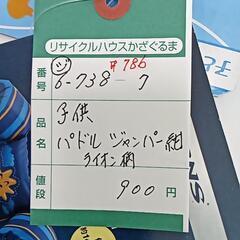 リサイクルハウスかざぐるま
#786
番号 ジ 6-738-7
品名 子供
パドル ジャンパー紺
ライオン柄
値段 900円